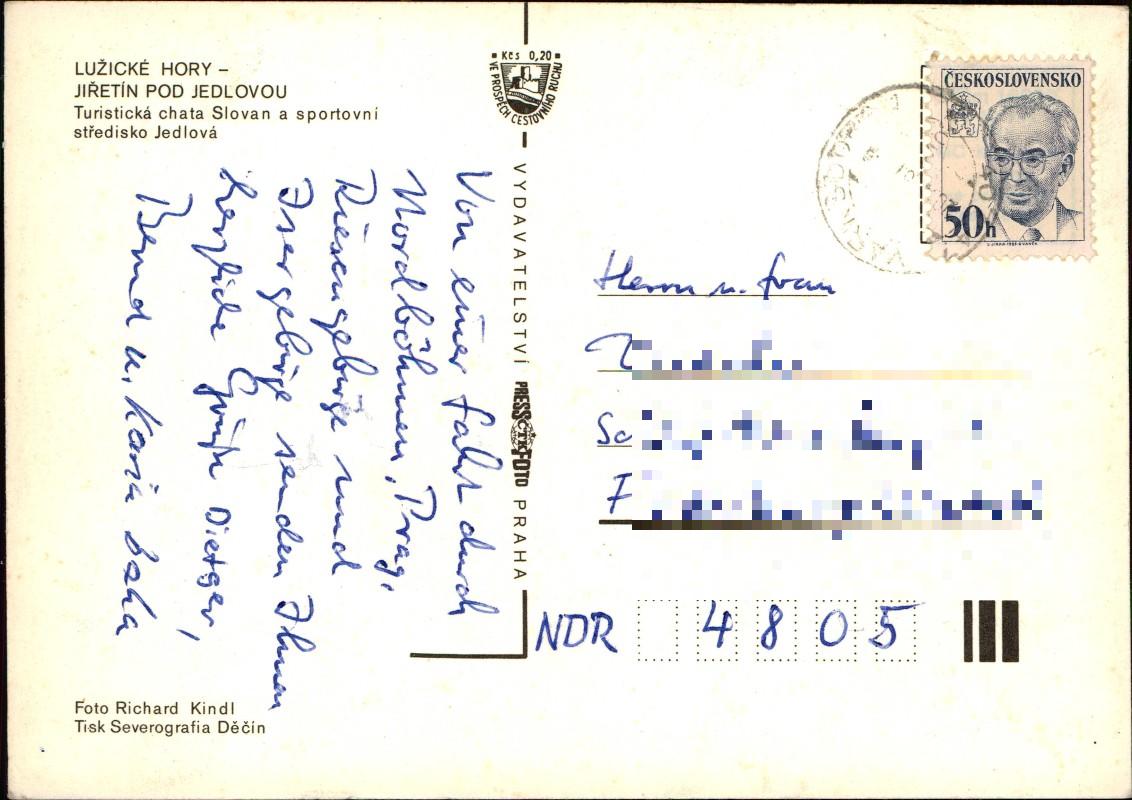 LUŽICKÉ HORY –
JIŘETÍN POD JEDLOVOU
Turistická chata Slovan a sportovní
středisko Jedlová
Kčs 0,20
VE PROSPĚCH CESTOVNÍHO RUCHU
VYDAVATELSTVÍ PRESSFOTO PRAHA
ČTK
Von einer Fahrt durch
Nordböhmen, Prag,
Riesengebirge und
Isergebirge senden Ihnen
herzliche Grüße Dietger,
Bernd u.
ČESKOSLOVENSKO
50h
Herrn u. Frau
NDR 4805
Foto Richard Kindl
Tisk Severografia Děčín